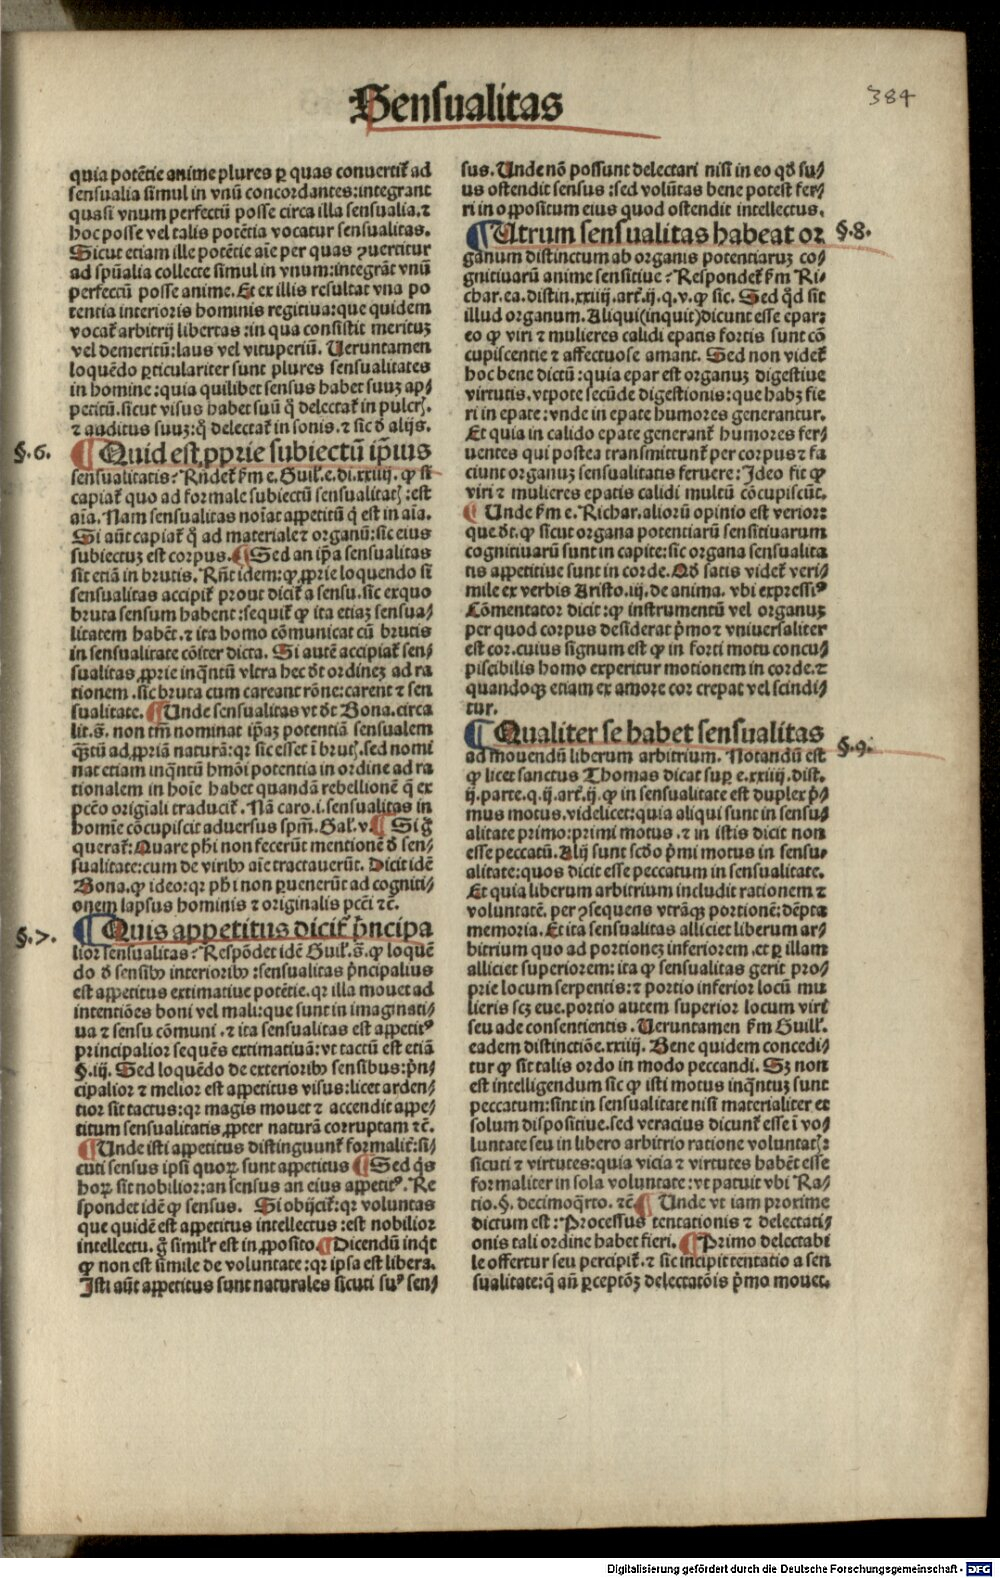 Sensualitas
384
quia potẽtie anime plures ꝑ quas conuertit᷑ ad
sensualia simul in vnũ concordantes: integrant
quasi vnum perfectũ posse circa illa sensualia. ⁊
hoc posse vel talis potẽtia vocatur sensualitas.
Sicut etiam ille potẽtie aĩe per quas ꝯuertitur
ad spũalia collecte simul in vnum: integrãt vnũ
perfectũ posse anime. Et ex illis resultat vna po
tentia interioris hominis regitiua: que quidem
vocat᷑ arbitrij libertas: in qua consistit merituꝫ
vel demeritũ: laus vel vituperiũ. Ueruntamen
loquẽdo ꝑticulariter sunt plures sensualitates
in homine: quia quilibet sensus habet suuꝫ ap⸗
petitũ. sicut visus habet suũ q̃ delectat᷑ in pulcrꝭ.
⁊ auditus suuꝫ: q̃ delectat᷑ in sonis. ⁊ sic ð alijs.
§.6.
¶ Quid est ꝓprie subiectũ ip̃ius
sensualitatis? Rñdet᷑ ẜm e. Guil. e. di. xxiiij. ꝙ si
capiat᷑ quo ad formale subiectũ sensualitatꝭ: est
aĩa. Nam sensualitas noĩat appetitũ q̇ est in aĩa.
Si aũt capiat᷑ q̃ ad materiale ⁊ organũ: sic eius
subiectuꝫ est corpus. ¶ Sed an ip̃a sensualitas
sit etiã in brutis. Rñt idem: ꝙ ꝓprie loquendo si
sensualitas accipit᷑ prout dicit᷑ a sensu. sic ex quo
bruta sensum habent: sequit᷑ ꝙ ita etiaꝫ sensua⸗
litatem habẽt. ⁊ ita homo cõmunicat cũ brutis
in sensualitate cõiter dicta. Si autẽ accipiat᷑ sen⸗
sualitas ꝓprie inq̃ntũ vltra hec dõt ordinez ad ra
tionem. sic bruta cum careant rõne: carent ⁊ sen
sualitate. ¶ Unde sensualitas vt dõt Bona. circa
lit. s̃. non tm̃ nominat ip̃aꝫ potentiã sensualem
q̃ꝫtũ ad ꝓpriã naturã: qꝛ sic esset ĩ brutꝭ. sed nomi
nat etiam inq̃ntũ hmõi potentia in ordine ad ra
tionalem in hoĩe habet quandã rebellionẽ q̇ ex
pctõ origĩali traducit᷑. Nã caro .i. sensualitas in
homĩe cõcupiscit aduersus spm̃. Gal. v. ¶ Si q̃
querat᷑: Quare ph̃i non fecerũt mentionẽ ð sen⸗
sualitate: cum de viribꝰ aĩe tractauerũt. Dicit idẽ
Bona. ꝙ ideo: qꝛ ph̃i non ꝑuenerũt ad cogniti⸗
onem lapsus hominis ⁊ originalis pctĩ ⁊c̃.
§.7.
¶ Quis appetitus dicit᷑ p̃ncipa
lior sensualitas? Respõdet idẽ Guil. s̃. ꝙ loquẽ
do ð sensibꝰ interioribꝰ: sensualitas p̃ncipalius
est appetitus extimatiue potẽtie. qꝛ illa mouet ad
intentiões boni vel mali: que sunt in imaginati⸗
ua ⁊ sensu cõmuni. ⁊ ita sensualitas est appetitꝰ
principalior sequẽs extimatiuã: vt tactũ est etiã
§. iij. Sed loquẽdo de exterioribꝰ sensibus: p̃n⸗
cipalior ⁊ melior est appetitus visus: licet arden⸗
tior sit tactus: qꝛ magis mouet ⁊ accendit appe⸗
titum sensualitatis ꝓpter naturã corruptam ⁊c̃.
¶ Unde isti appetitus distinguunt᷑ formalit᷑: si⸗
cuti sensus ipsi quoꝝ sunt appetitus ¶ Sed q̇s
hoꝝ sit nobilior: an sensus an eius appetitꝰ. Re
spondet idẽ ꝙ sensus. Si obijcit᷑: qꝛ voluntas
que quidẽ est appetitus intellectus: est nobilior
intellectu. g̃ similr̃ est in ꝓposito. ¶ Dicendũ inq̇t
ꝙ non est simile de voluntate: qꝛ ipsa est libera.
Isti aũt appetitus sunt naturales sicuti suꝰ sen⸗
sus. Unde nõ possunt delectari nisi in eo qð su⸗
us ostendit sensus: sed volũtas bene potest fer⸗
ri in oppositum eius quod ostendit intellectus.
§.8.
¶ Utrum sensualitas habeat or
ganum distinctum ab organis potentiaruꝫ co⸗
gnitiuarũ anime sensitiue? Respondet᷑ ẜm Ri⸗
char. ea. distin. xxiiij. art᷑. ij. q. v. ꝙ sic. Sed qͥd sit
illud organum. Aliqui (inquit) dicunt esse epar:
eo ꝙ viri ⁊ mulieres calidi epatis fortis sunt cõ
cupiscentie ⁊ affectuose amant. Sed non videt᷑
hoc bene dictũ: quia epar est organuꝫ digestiue
virtutis. vtpote secũde digestionis: que habꝫ fie
ri in epate: vnde in epate humores generantur.
Et quia in calido epate generant᷑ humores fer⸗
uentes qui postea transmittunt᷑ per corpus ⁊ fa
ciunt organuꝫ sensualitatis feruere: Ideo fit ꝙ
viri ⁊ mulieres epatis calidi multũ cõcupiscũt.
¶ Unde ẜm e. Richar. aliorũ opinio est verior:
que dõt. ꝙ sicut organa potentiarũ sensitiuarum
cognitiuarũ sunt in capite: sic organa sensualita
tis appetitiue sunt in corde. Qð satis videt᷑ veri⸗
mile ex verbis Aristo. iij. de anima. vbi expressiꝰ
Cõmentator dicit: ꝙ instrumentũ vel organuꝫ
per quod corpus desiderat p̃mo ⁊ vniuersaliter
est cor. cuius signum est ꝙ in forti motu concu⸗
piscibilis homo experitur motionem in corde. ⁊
quandoqꝫ etiam ex amore cor crepat vel scindi⸗
tur.
§.9.
¶ Qualiter se habet sensualitas
ad mouendũ liberum arbitrium. Notandũ est
ꝙ licet sanctus Thomas dicat suꝑ e. xxiiij. dist.
ij. parte. q. ij. art᷑. ij. ꝙ in sensualitate est duplex p̃⸗
mus motus. videlicet: quia aliqui sunt in sensu⸗
alitate primo: primi motus. ⁊ in istis dicit non
esse peccatũ. Alij sunt scðo p̃mi motus in sensu⸗
alitate: quos dicit esse peccatum in sensualitate.
Et quia liberum arbitrium includit rationem ⁊
voluntatẽ. per ꝯsequens vtrãqꝫ portionẽ: dẽpta
memoria. Et ita sensualitas alliciet liberum ar⸗
bitrium quo ad portioneꝫ inferiorem. et ꝑ illam
alliciet superiorem: ita ꝙ sensualitas gerit pro⸗
prie locum serpentis: ⁊ portio inferior locũ mu
lieris scꝫ eue. portio autem superior locum viri
seu ade consentientis. Ueruntamen ẜm Guill.
eadem distinctiõe. xxiiij. Bene quidem concedi⸗
tur ꝙ sit talis ordo in modo peccandi. Sꝫ non
est intelligendum sic ꝙ isti motus inq̃ntuꝫ sunt
peccatum: sint in sensualitate nisi materialiter et
solum dispositiue. sed veracius dicunt᷑ esse ĩ vo⸗
luntate seu in libero arbitrio ratione voluntatꝭ:
sicuti ⁊ virtutes: quia vicia ⁊ virtutes habẽt esse
formaliter in sola voluntate: vt patuit vbi Ra⸗
tio. §. decimoq̃rto. ⁊c̃. ¶ Unde vt iam proxime
dictum est: Processus tentationis ⁊ delectati⸗
onis tali ordine habet fieri. ¶ Primo delectabi
le offertur seu percipit᷑. ⁊ sic incipit tentatio a sen
sualitate: q̃ añ ꝑceptõꝫ delectatõis p̃mo mouet.
Digitalisierung gefördert durch die Deutsche Forschungsgemeinschaft - DFG